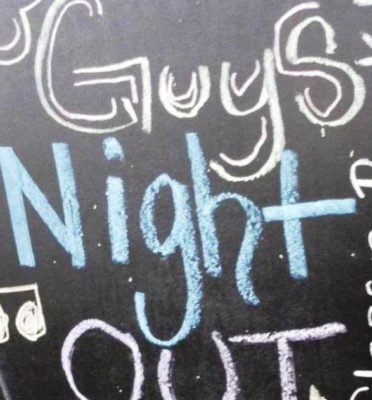 Guys
Night
OUT